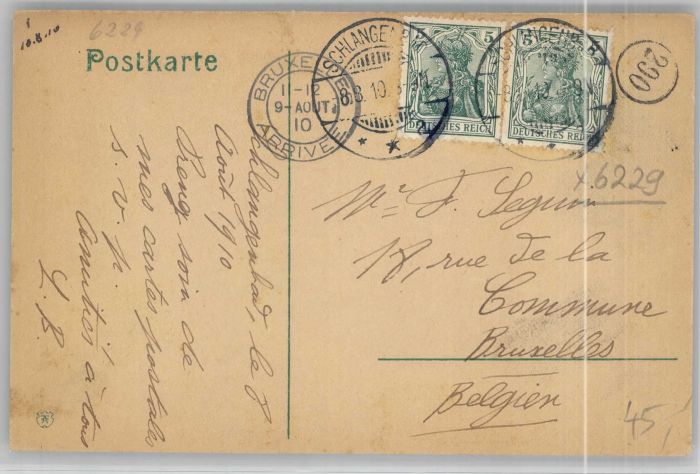 10.8.10
6229
Postkarte
BRUXELLES
11-12
9-AOUT
10
ARRIVEE
SCHLANGENBAD
8.8.10
5
DEUTSCHES REICH
5
DEUTSCHES REICH
290
x 6229
Schlangenbad, le 8
Août 1910
Preng soin de
mes cartes postales
s. v. p.
Amitiés à tous
L. B.
Mr F. Seguin
18, rue de la
Commune
Bruxelles
Belgien
45,-